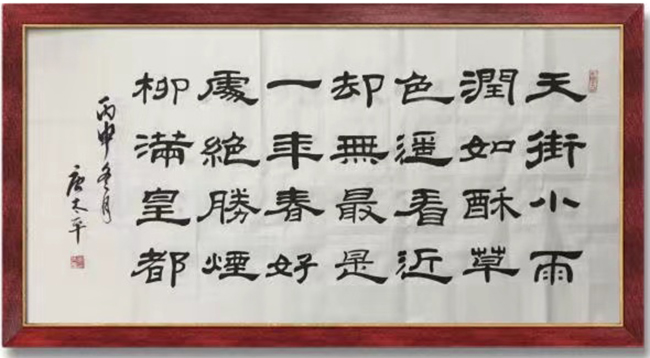 天街小雨
潤如酥草
色遥看近
却無最是
一年春好
處絕勝煙
柳滿皇都
丙申冬月